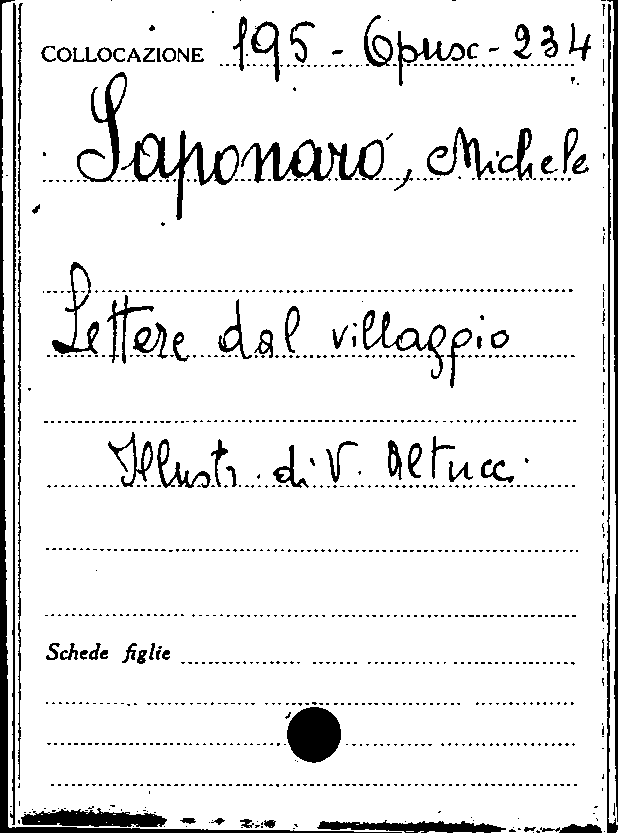 COLLOCAZIONE 195 - Opusc - 234
Saponaro, Michele
Lettere dal villaggio
Illustr. di V. Altucci
Schede figlie